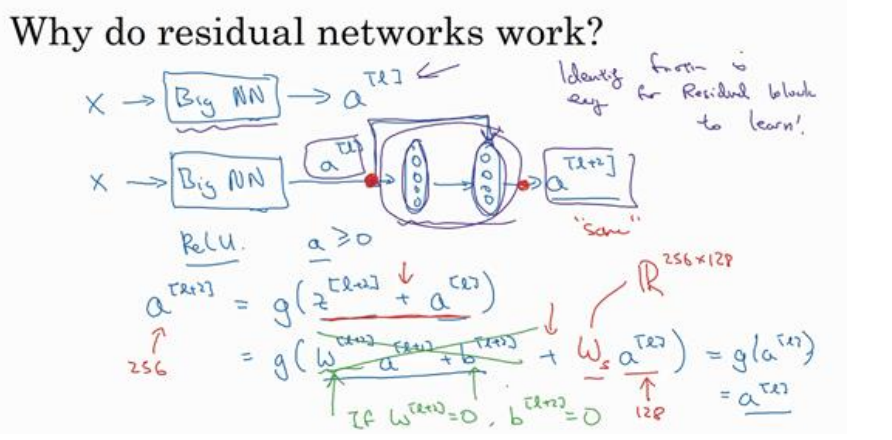 Why do residual networks work?
X → Big NN → a^[l]
Identity function is
easy for Residual block
to learn!
X → Big NN a^[l] → a^[l+2]
"same"
ReLU. a ≥ 0
ℝ^256×128
a^[l+2] = g(z^[l+2] + a^[l])
256
= g(W^[l+2] a^[l+1] + b^[l+2] + W_s a^[l]) = g(a^[l])
= a^[l]
If W^[l+2]=0, b^[l+2]=0
128